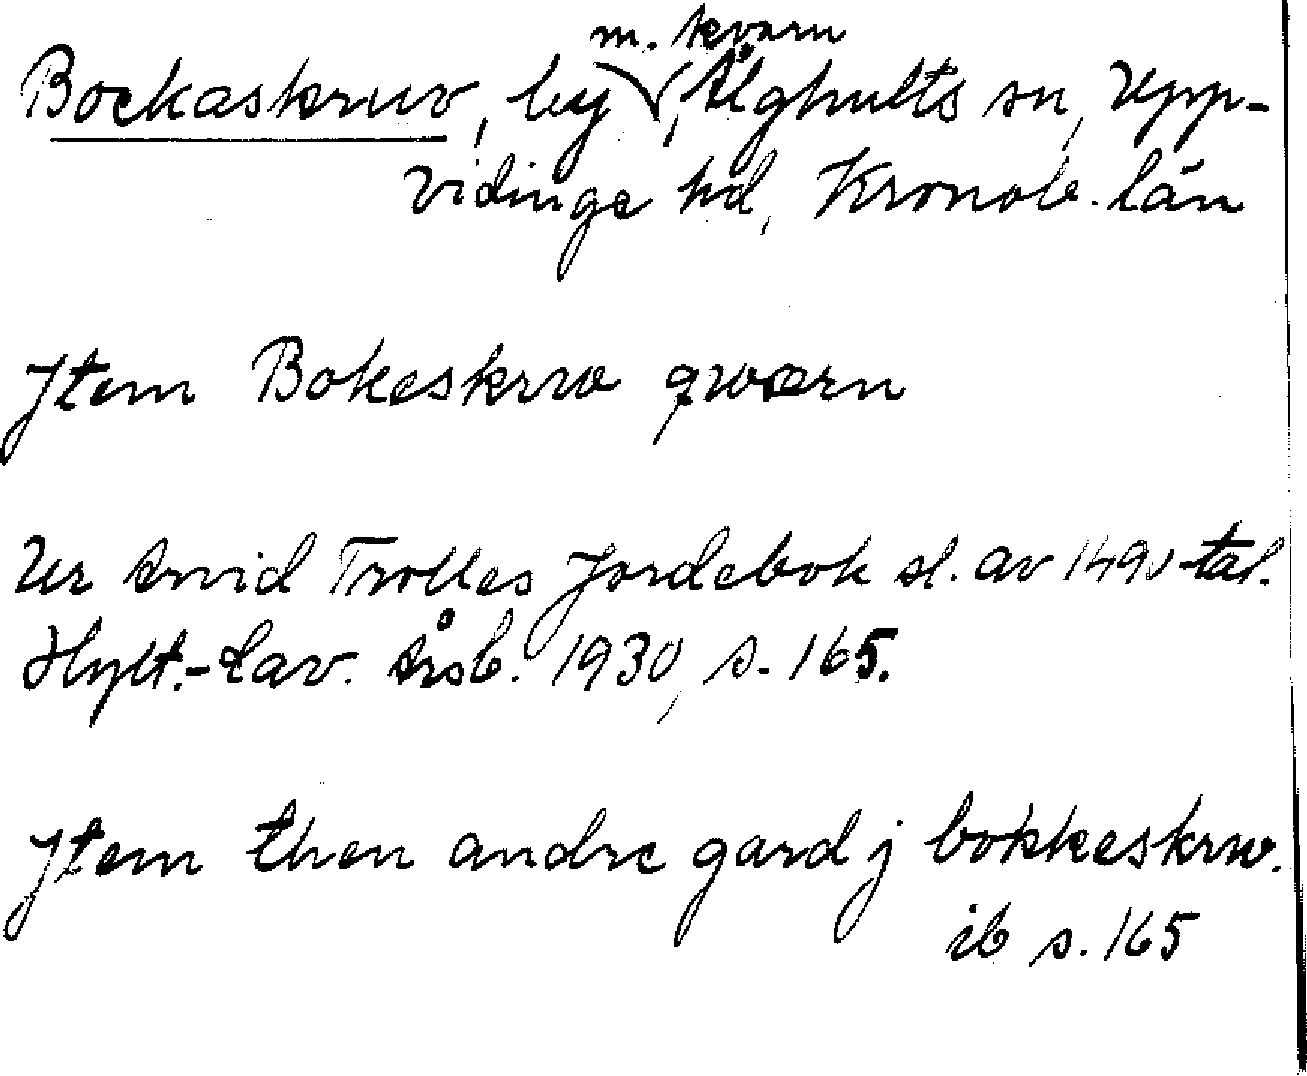 m. kvarn
Bockaskruv, by, Älghults sn, Upp-
vidinge hd, Kronob. län
Jtem Bokeskrvo qwærn
Ur Arvid Trolles Jordebok sl. av 1490-tal.
Hylt.-Cav. Årsb. 1930, s. 165.
Jtem then andre gard j bokkeskrw.
ib s. 165